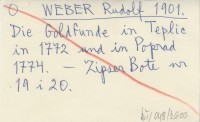 WEBER Rudolf 1901.
Die Goldfunde in Teplic
in 1772 und in Poprad
1774. — Zipser Bote nr
19 i 20.